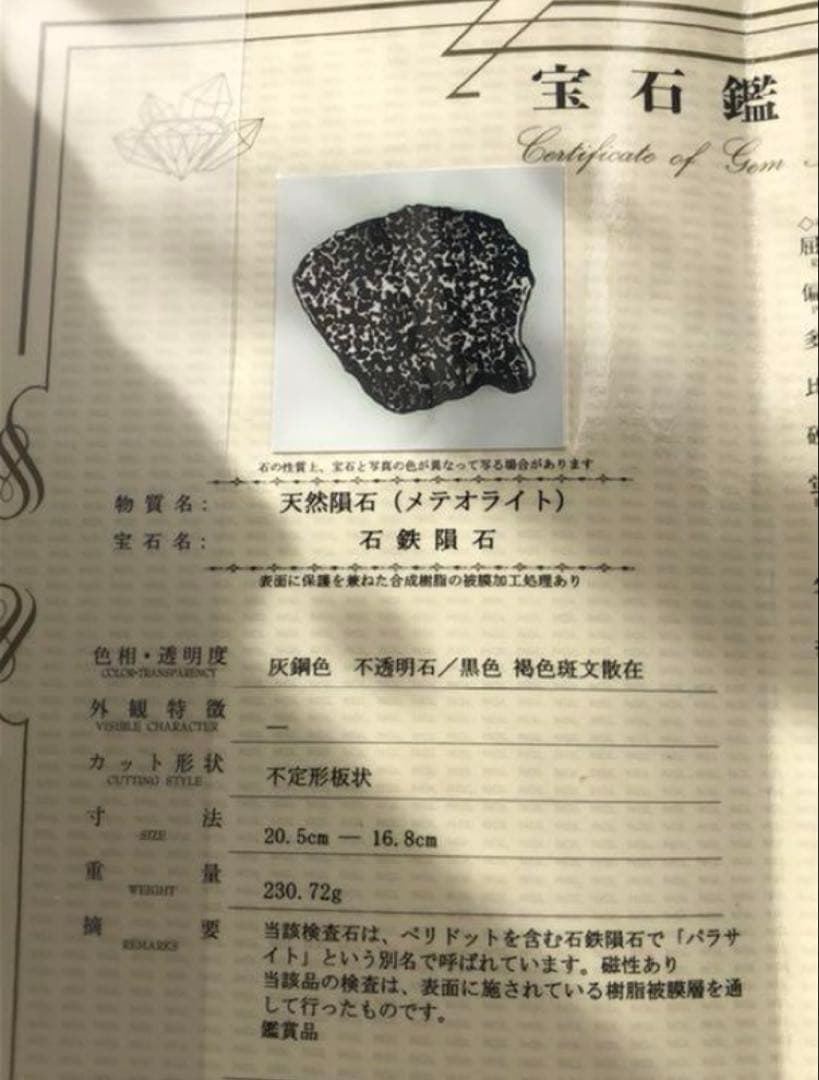 宝石鑑
Certificate of Gem
石の性質上、宝石と写真の色が異なって写る場合があります
物質名: 天然隕石（メテオライト）
宝石名: 石鉄隕石
表面に保護を兼ねた合成樹脂の被膜加工処理あり
色相・透明度 灰鋼色 不透明石／黒色 褐色斑文散在
COLOR・TRANSPARENCY
外観特徴 —
VISIBLE CHARACTER
カット形状 不定形板状
CUTTING STYLE
寸法 20.5cm — 16.8cm
SIZE
重量 230.72g
WEIGHT
摘要 当該検査石は、ペリドットを含む石鉄隕石で「パラサ
REMARKS イト」という別名で呼ばれています。磁性あり
当該品の検査は、表面に施されている樹脂被膜層を通
して行ったものです。
鑑賞品
屈
偏
多
比
硬